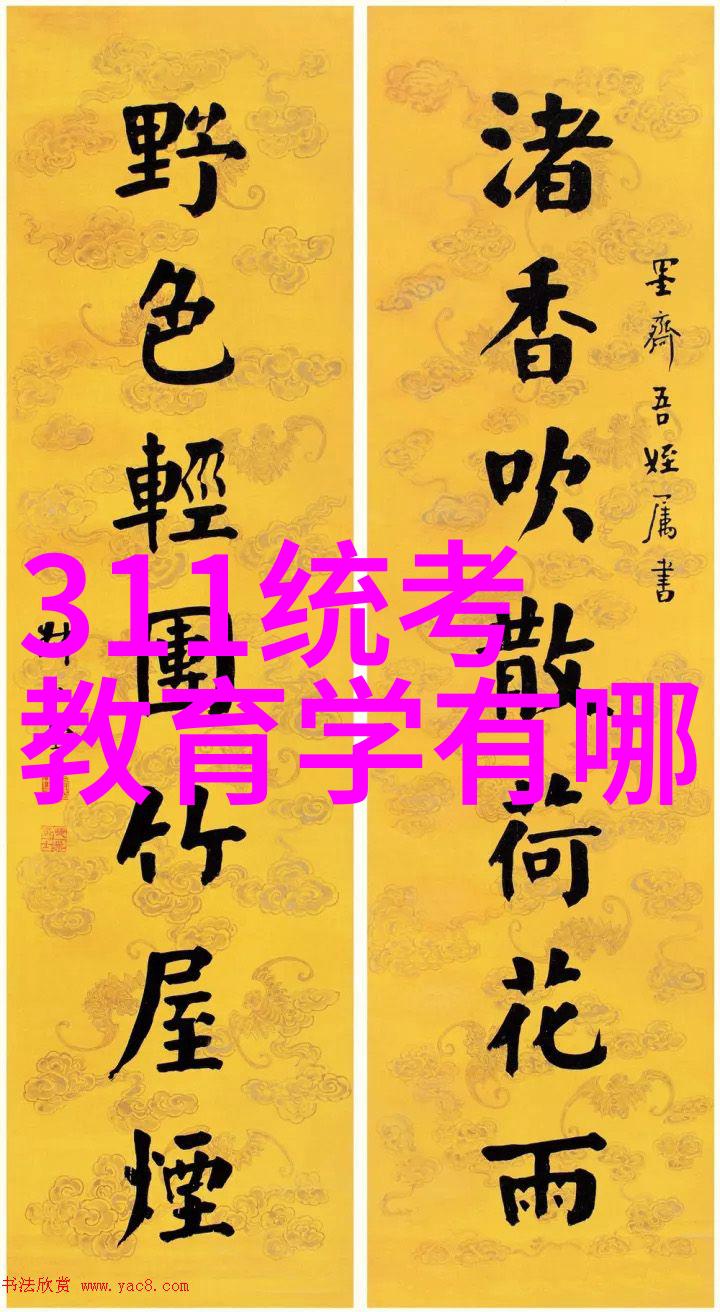 渚香吹散荷花雨
墨齋吾姪属書
野色輕團竹屋煙
311统考
教育学有哪
书法欣赏 www.yac8.com